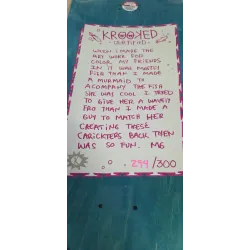 KROOKED
CERTIFIED
WHEN I MADE THE
ART WORK FOR
COLOR MY FRIENDS
IN IT WAS MOSTLY
FISH THAN I MADE
A MURMAID TO
ACOMPANY THE FISH
SHE WAS COOL I TRIED
TO GIVE HER A WAVEIY
FRO THAN I MADE A
GUY TO MATCH HER
CREATING THESE
CARICKTERS BACK THEN
WAS SO FUN. MG
294/300